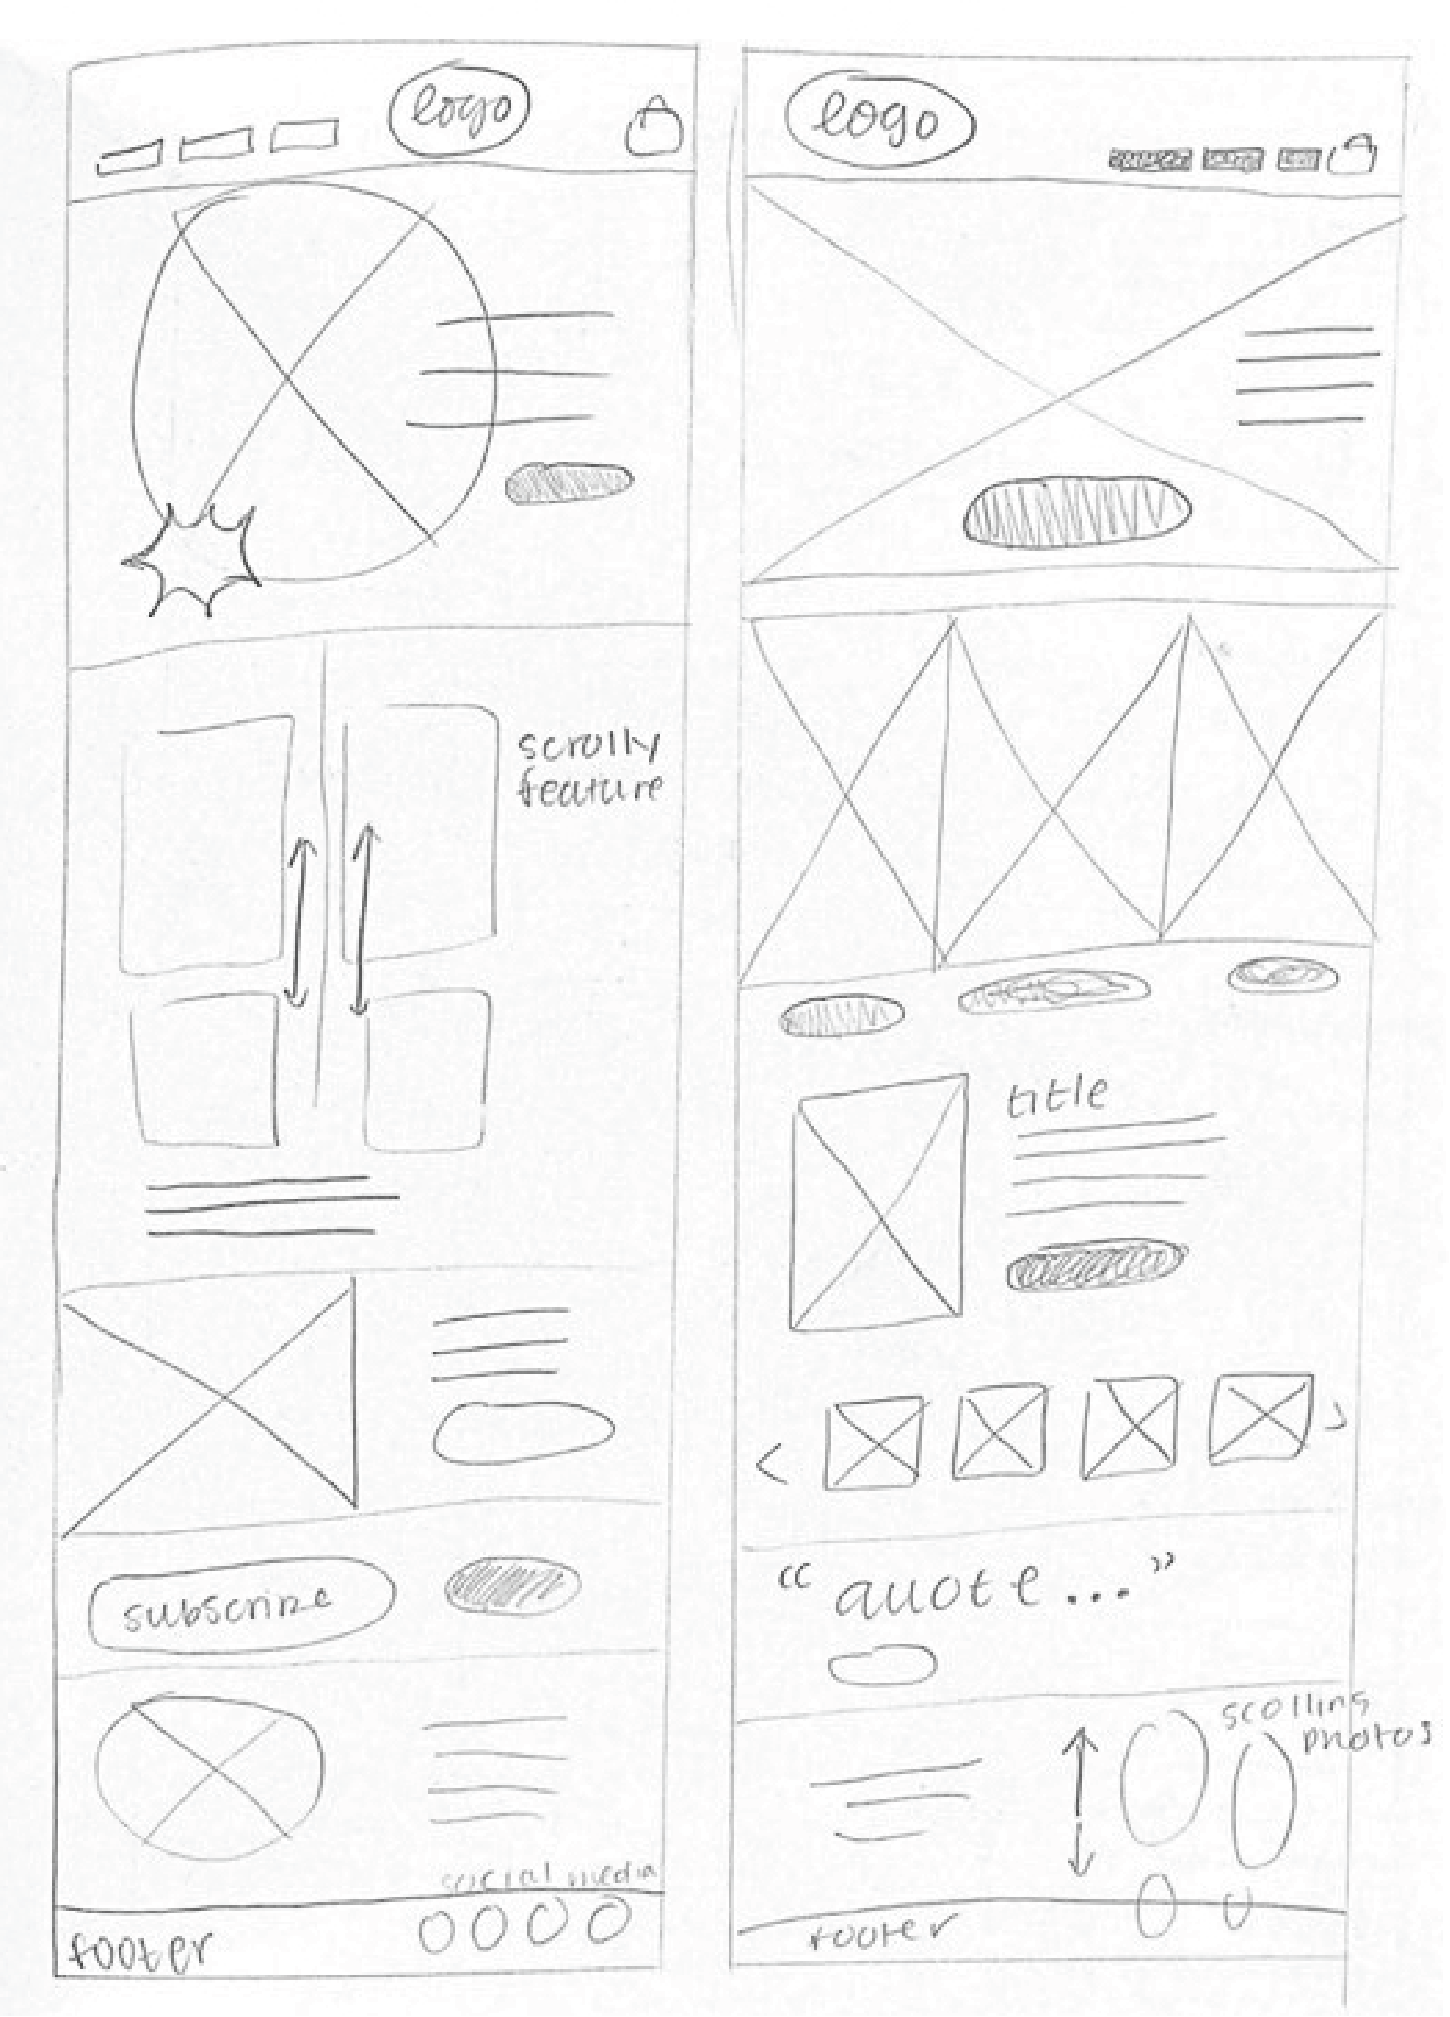 logo
scrolly
feature
subscribe
social media
footer
logo
title
"quote..."
scolling
photos
footer